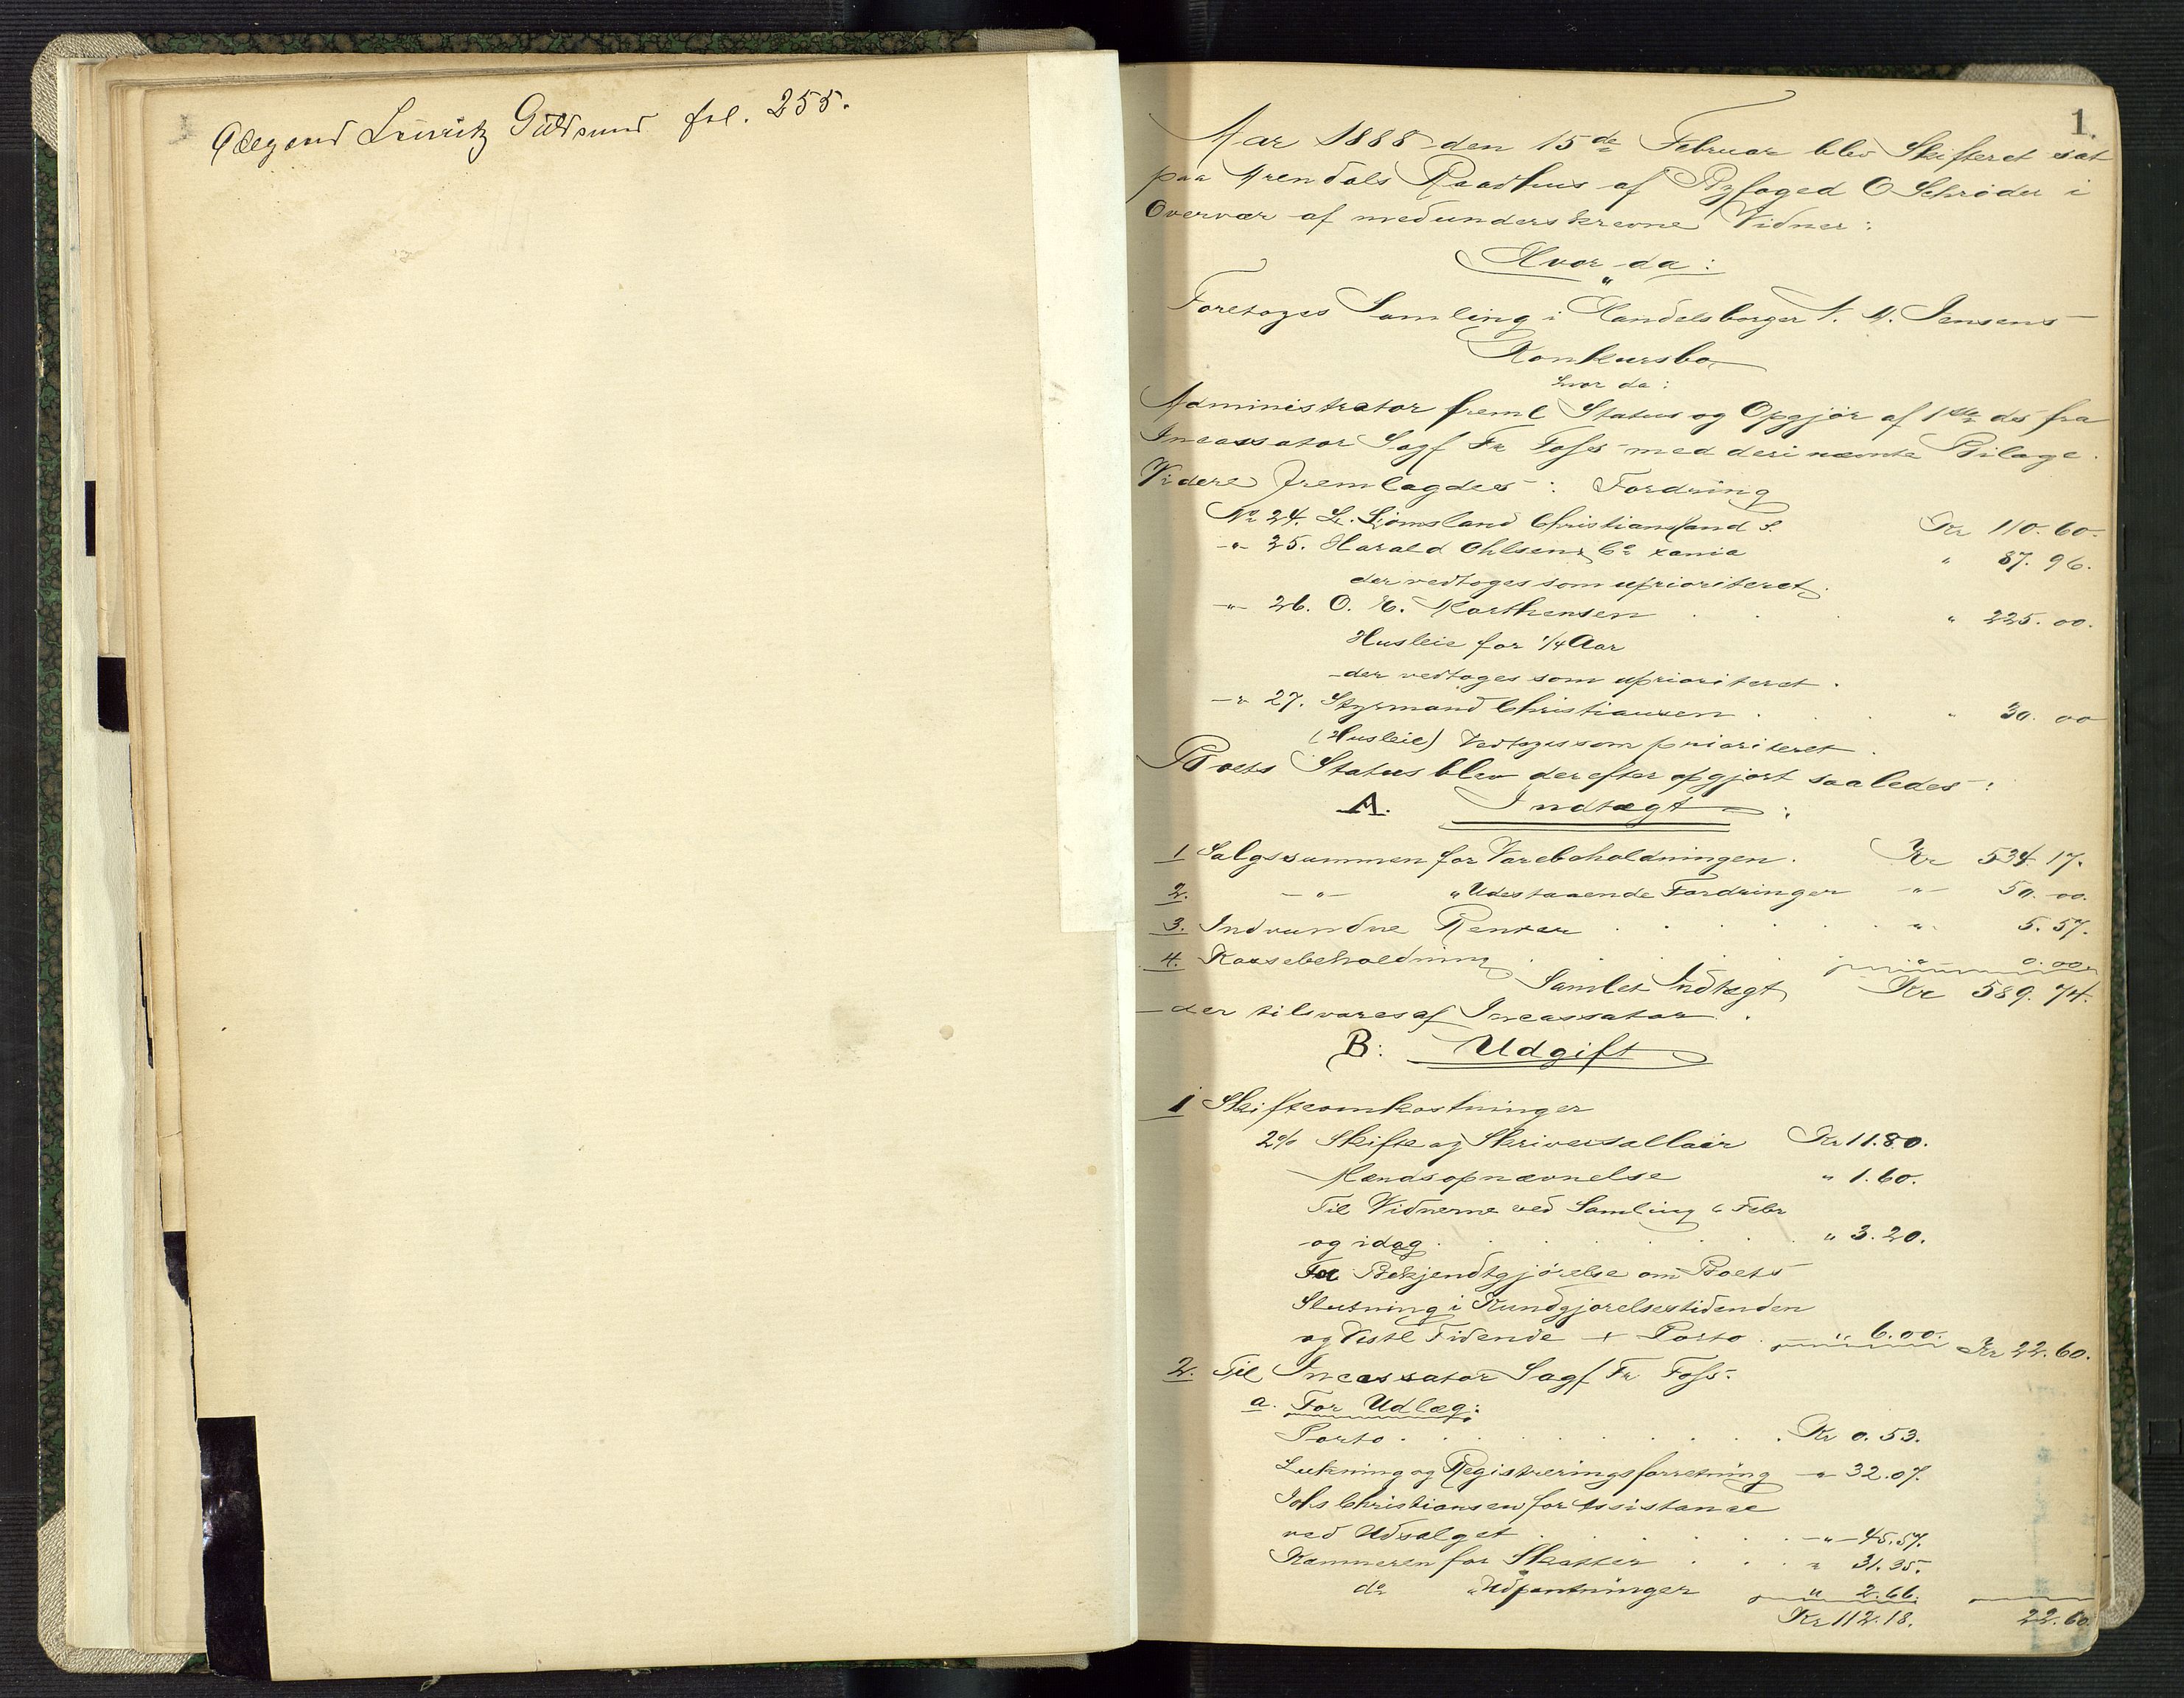 fol. 255.
1.
Aar 1888 den 15de Februar blev Skifteret sat
paa Arendals Raadhus af Byfoged O Schrøder i
Overvær af medunderskrevne Vidner:
Hvor da:
Foretoges Samling i Handelsborger N. A. Jensens
Konkursbo
hvor da:
Administrator freml Status og Opgjør af 1ste ds fra
Incassator Sagf Fr Foss med deri nævnte Bilage.
Videre fremlagdes: Fordring
No 24. L. Ljømsland Christianssand S. Kr 110.60.
-"- 25. Harald Ohlsen & Co xania " 87.96.
der vedtoges som uprioriteret.
-"- 26. O. E. Marthensen " 225.00.
Husleie for 1/4 Aar
der vedtoges som uprioriteret.
-"- 27. Styrmand Christiansen " 30.00
(Husleie) Vedtoges som prioriteret.
Boets Status blev derefter opgjort saaledes:
A. Indtægt:
1 Salgssummen for Varebeholdningen. Kr 534.17.
2. -"- " Udestaaende Fordringer -"- 50.00.
3. Indvundne Renter -"- 5.57.
4. Kassebeholdning " 0.00
Samlet Indtægt Kr 589.74.
der tilsvares af Incassator.
B: Udgift
1 Skifteomkostninger
2% Skifte og Skriversallair Kr 11.80.
Mændsopnævnelse " 1.60.
Til Vidnerne ved Samling 6 Febr
og idag " 3.20.
For Bekjendtgjørelse om Boets
Slutning i Kundgjørelsestidenden
og Vestl Tidende + Porto. " 6.00. Kr 22.60.
2. Til Incassator Sagf Fr Foss.
a. For Udlæg:
Porto Kr 0.53.
Lukning og Registreringsforretning -"- 32.07.
Johs Christiansen for Assistance
ved Udsalget -"- 45.57.
Kæmneren for Skatter " 31.35.
do " Udpantninger " 2.66.
Kr 112.18. 22.60